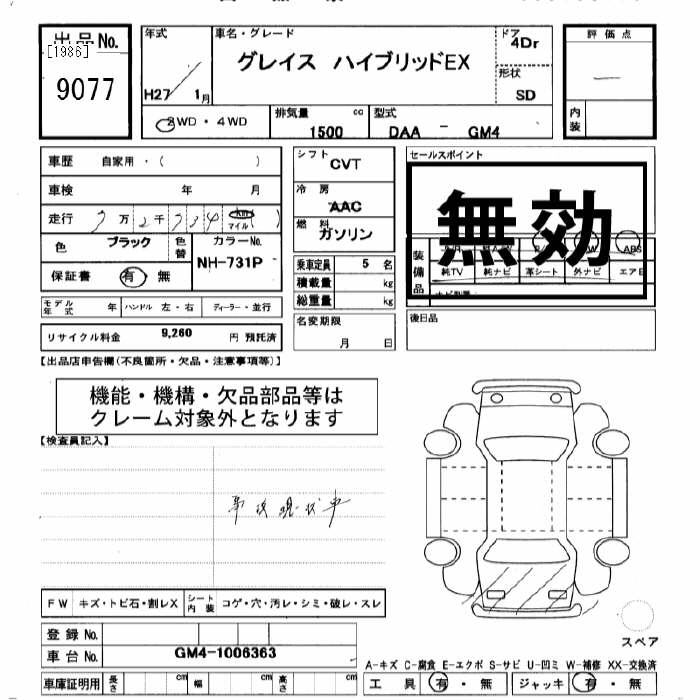 出品No.
[1986]
9077
年式
H27 / 1月
車名・グレード
グレイス ハイブリッドEX
ドア
4Dr
形状
SD
評価点
内装
2WD・4WD
排気量 cc
1500
型式
DAA - GM4
車歴 自家用・( )
車検 年 月
走行 7万2千734 km マイル ( )
色 ブラック
色替
カラーNo.
NH-731P
保証書 有 無
モデル年式 年
ハンドル 左・右
ディーラー・並行
リサイクル料金 9,260 円 預託済
シフト
CVT
冷房
AAC
燃料
ガソリン
乗車定員 5 名
積載量 kg
総重量 kg
名変期限
月 日
セールスポイント
無効
装備品
ABS
純TV 純ナビ 革シート 外ナビ エアB
後日品
【出品店申告欄(不良箇所・欠品・注意事項等)】
機能・機構・欠品部品等は
クレーム対象外となります
【検査員記入】
事故現状車
FW キズ・トビ石・割レX
シート内装 コゲ・穴・汚レ・シミ・破レ・スレ
登録No.
車台No. GM4-1006363
車庫証明用 長さ cm 幅 cm 高さ cm
スペア
A-キズ C-腐食 E-エクボ S-サビ U-凹ミ W-補修 XX-交換済
工具 有・無
ジャッキ 有・無